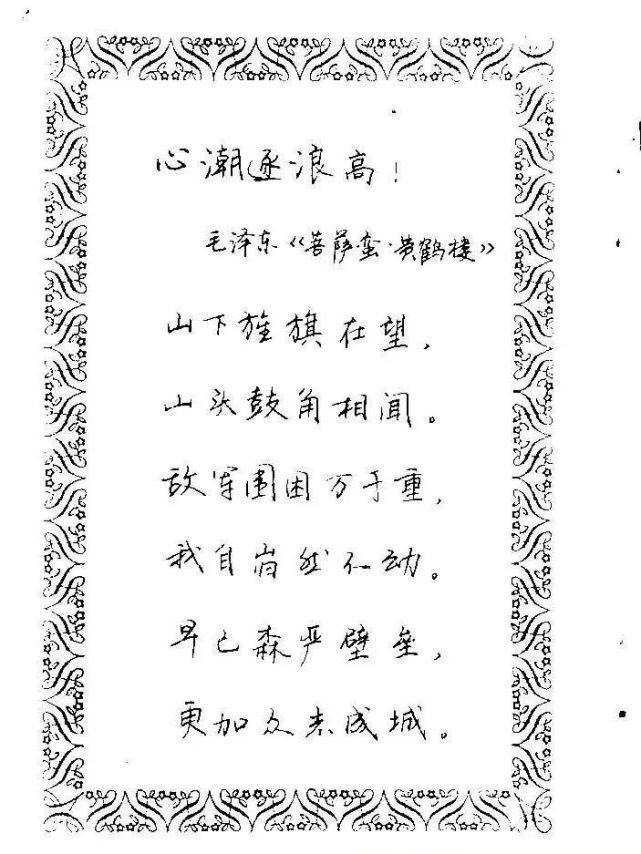 心潮逐浪高！
毛泽东《菩萨蛮·黄鹤楼》
山下旌旗在望，
山头鼓角相闻。
敌军围困万千重，
我自岿然不动。
早已森严壁垒，
更加众志成城。